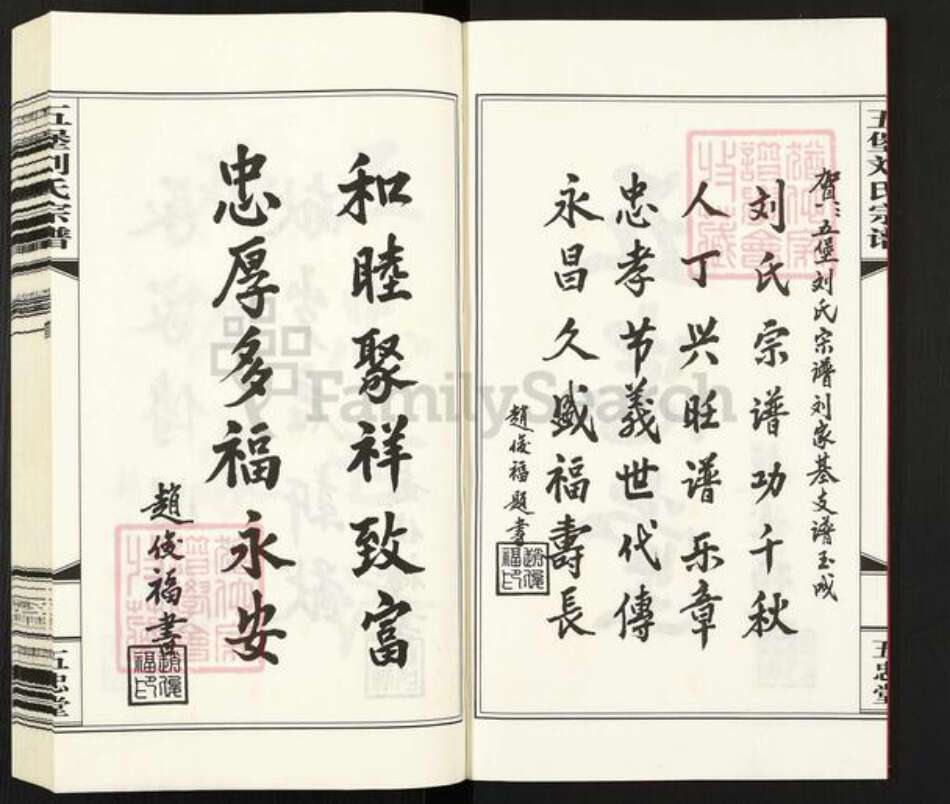 五堡刘氏宗谱
五忠堂
贺:五堡刘氏宗谱刘家基支谱玉成
刘氏宗谱功千秋
人丁兴旺谱乐章
忠孝节義世代傳
永昌久盛福壽長
趙俊福题書
和睦聚祥致富
忠厚多福永安
趙俊福書
五堡刘氏宗谱
五忠堂
FamilySearch